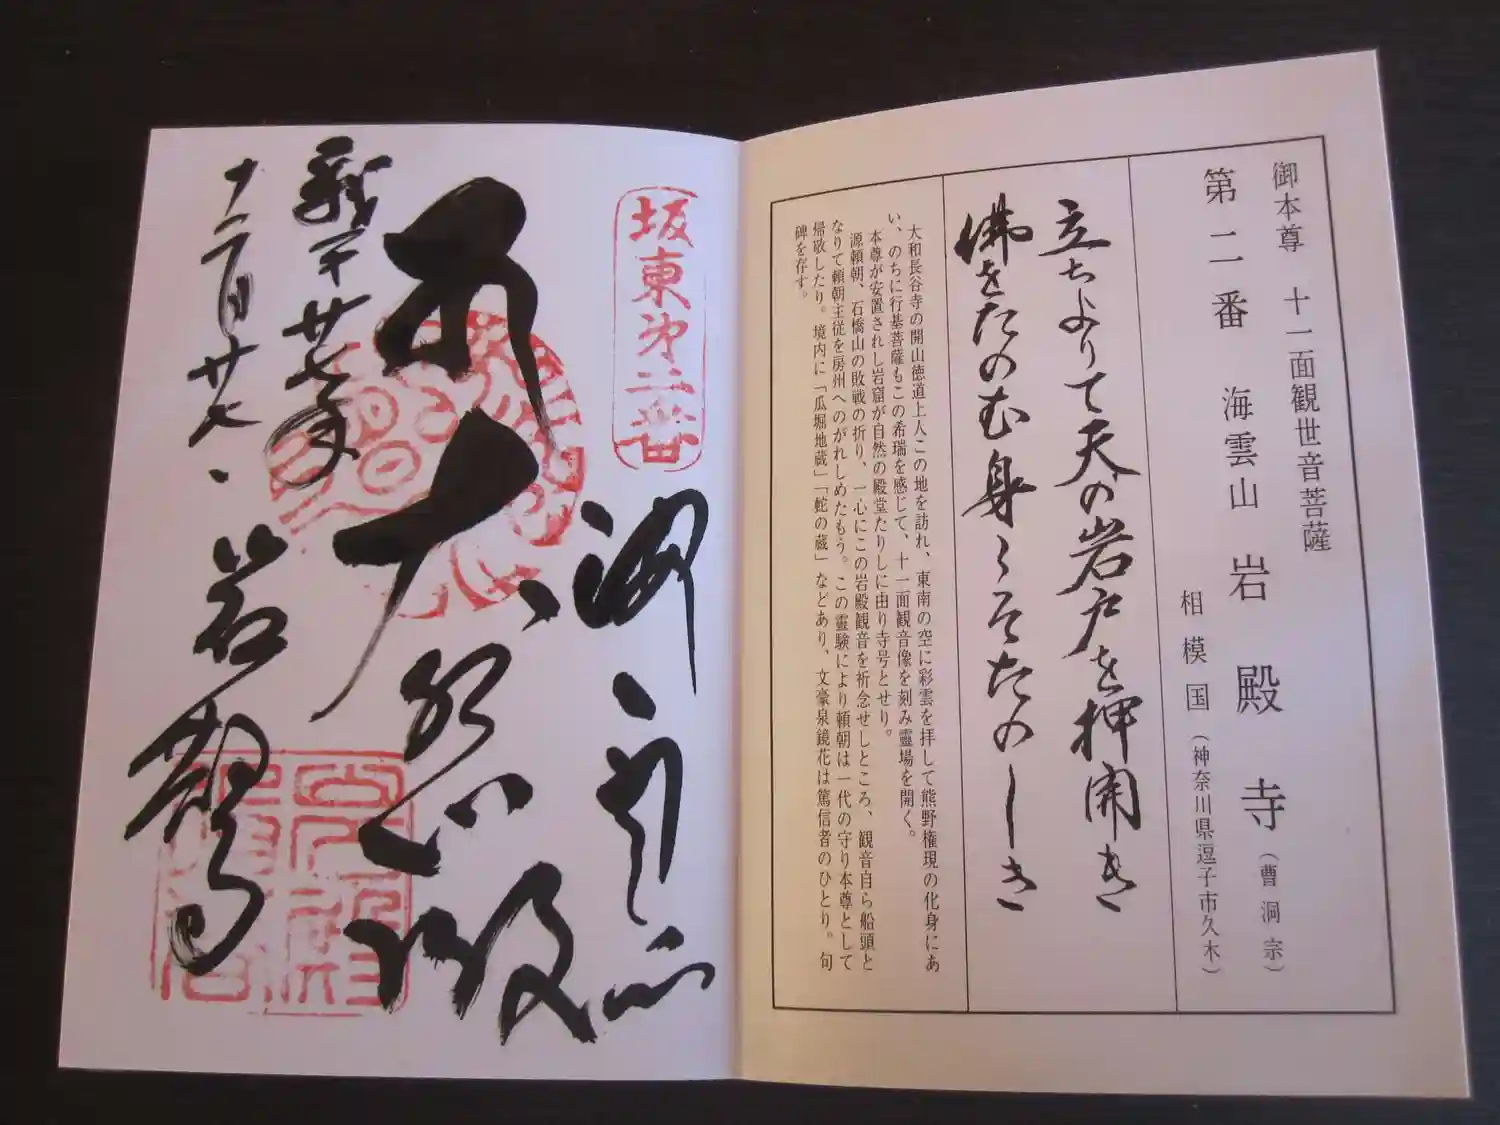 御本尊 十一面観世音菩薩
第二番 海雲山 岩殿寺(曹洞宗)
相模国(神奈川県逗子市久木)
立ちよりて天の岩戸を押開き
佛をたのむ身こそたのしき
大和長谷寺の開山徳道上人この地を訪れ、東南の空に彩雲を拝して熊野権現の化身にあ
い、のちに行基菩薩もこの希瑞を感じて、十一面観音像を刻み霊場を開く。
本尊が安置されし岩窟が自然の殿堂たりしに由り寺号とせり。
源頼朝、石橋山の敗戦の折り、一心にこの岩殿観音を祈念せしところ、観音自ら船頭と
なりて頼朝主従を房州へのがれしめたもう。この霊験により頼朝は一代の守り本尊として
帰敬したり。境内に「瓜堀地蔵」「蛇の蔵」などあり、文豪泉鏡花は篤信者のひとり。句
碑を存す。
坂東第二番
廿七年
十二月廿七
岩殿寺